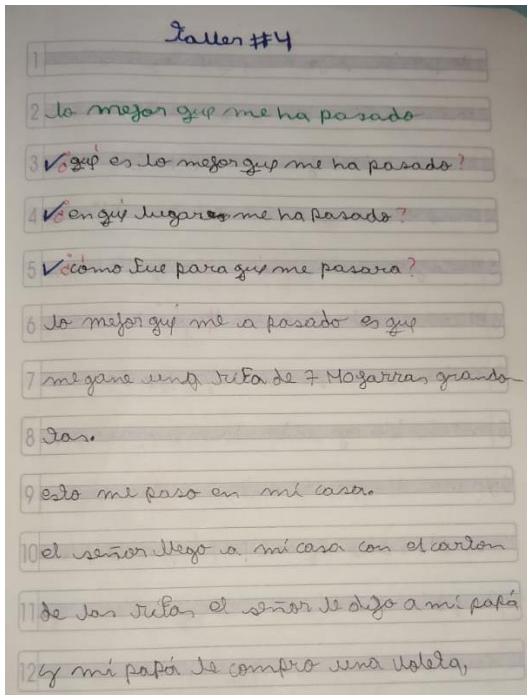 Taller #4
1
2 lo mejor que me ha pasado
3 ¿qué es lo mejor que me ha pasado?
4 ¿en qué lugar me ha pasado?
5 ¿cómo fue para que me pasara?
6 lo mejor que me a pasado es que
7 me gane una rifa de 7 Mogarras grando
8 tas.
9 esto me paso en mi casa.
10 el señor llego a mi casa con el carton
11 de las rifas el señor le dijo a mi papá
12 y mi papá le compro una voleta,